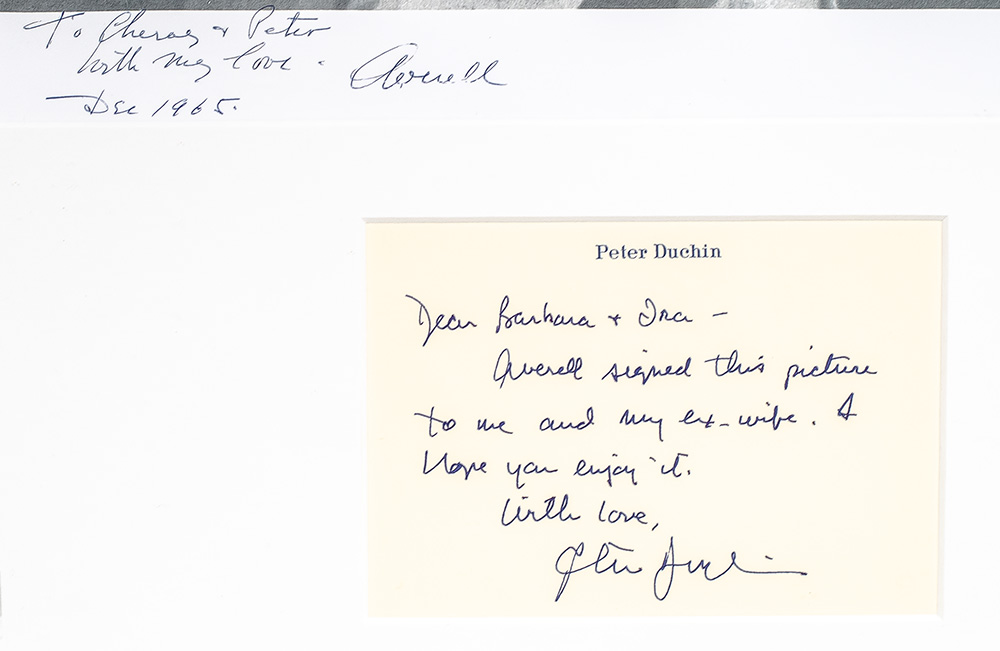 To Cheray + Peter
with my love -
Averell
Dec 1965.
Peter Duchin
Dear Barbara + Ira -
Averell signed this picture
to me and my ex-wife. I
hope you enjoy it.
With love,
Peter Duchin